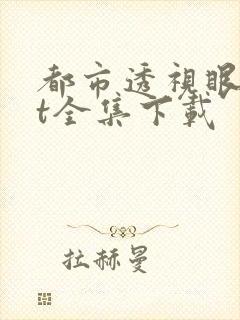 都市透視眼
t全集下載
拉赫曼